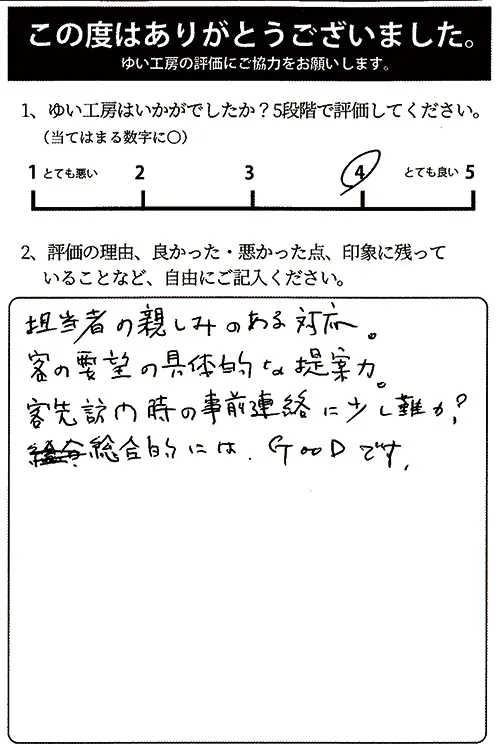 この度はありがとうございました。
ゆい工房の評価にご協力をお願いします。
1、ゆい工房はいかがでしたか？5段階で評価してください。
（当てはまる数字に○）
1 とても悪い 2 3 4 とても良い 5
2、評価の理由、良かった・悪かった点、印象に残って
いることなど、自由にご記入ください。
担当者の親しみのある対応。
客の要望の具体的な提案力。
客先訪問時の事前連絡に少し難か？
総合的には、GOODです。